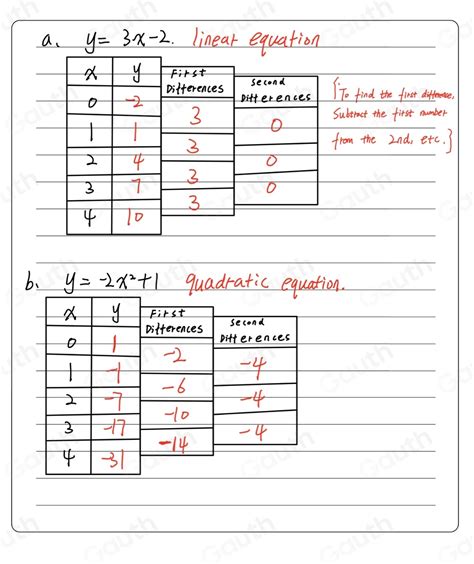 a. y = 3x-2. linear equation
x y First Differences Second Differences
0 -2
3
1 1 0
3
2 4 0
3
3 7 0
3
4 10
{: To find the first differences,
Subtract the first number
from the 2nd, etc.}
b. y = -2x²+1 quadratic equation.
x y First Differences Second Differences
0 1
-2
1 -1 -4
-6
2 -7 -4
-10
3 -17 -4
-14
4 -31
Gauth